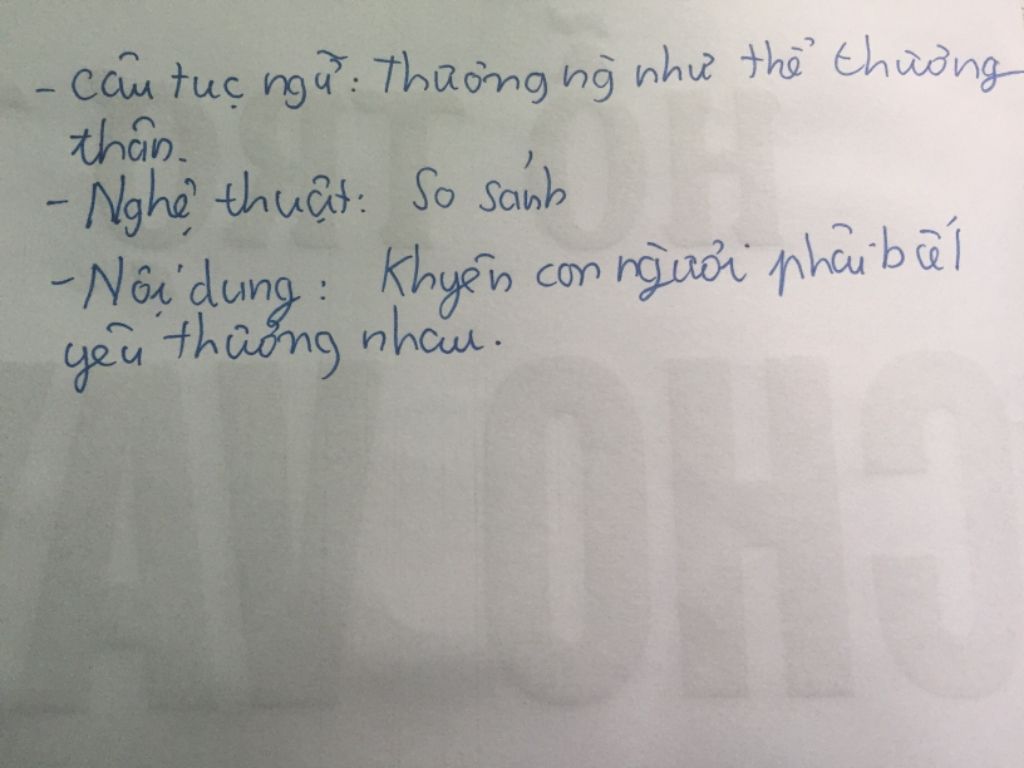 - Câu tục ngữ: Thương ng` như thể thương
thân.
- Nghệ thuật: So sánh
- Nội dung: Khuyên con người phải biết
yêu thương nhau.
HỖ TRỢ
CHO VAY